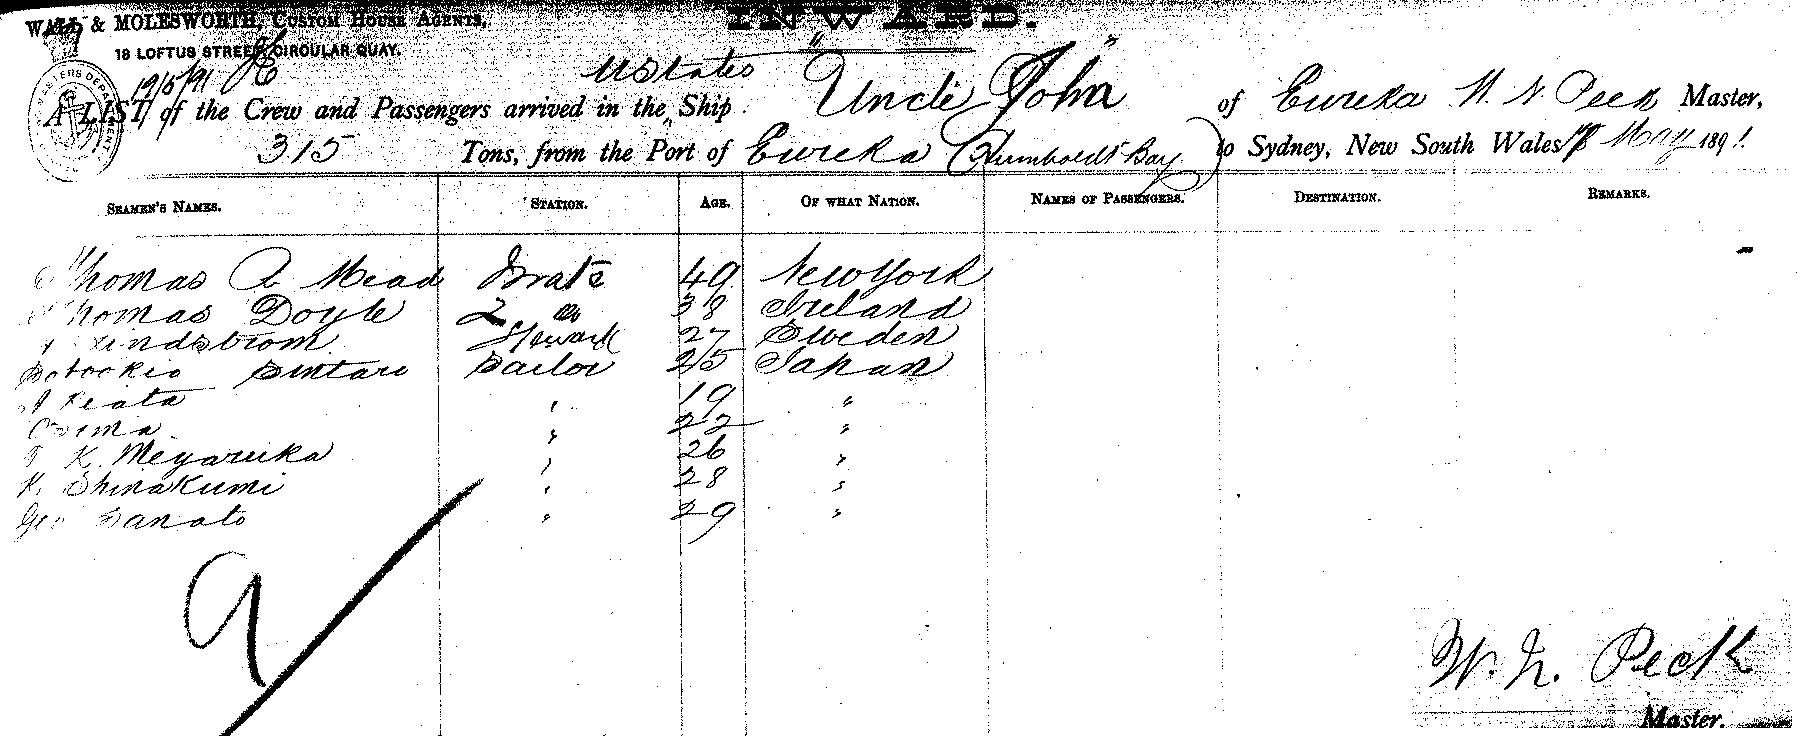 WALL & MOLESWORTH, CUSTOM HOUSE AGENTS,
INWARD.
18 LOFTUS STREET, CIRCULAR QUAY.
19/5/91
U States
A LIST of the Crew and Passengers arrived in the Ship "Uncle John" of Eureka W. N. Peck Master,
315 Tons, from the Port of Eureka (Humboldt Bay) to Sydney, New South Wales May 1891.
SEAMEN'S NAMES. STATION. AGE. OF WHAT NATION. NAMES OF PASSENGERS. DESTINATION. REMARKS.
Thomas A Mead Mate 49 New York
Thomas Doyle 2 do 38 Ireland
Lindstrom Steward 27 Sweden
Sintaro Sailor 25 Japan
Keata " 19 "
" 22 "
K. Meyaruka " 26 "
K. Shinakumi " 28 "
Geo Sanato " 29 "
9
W. N. Peck
Master.